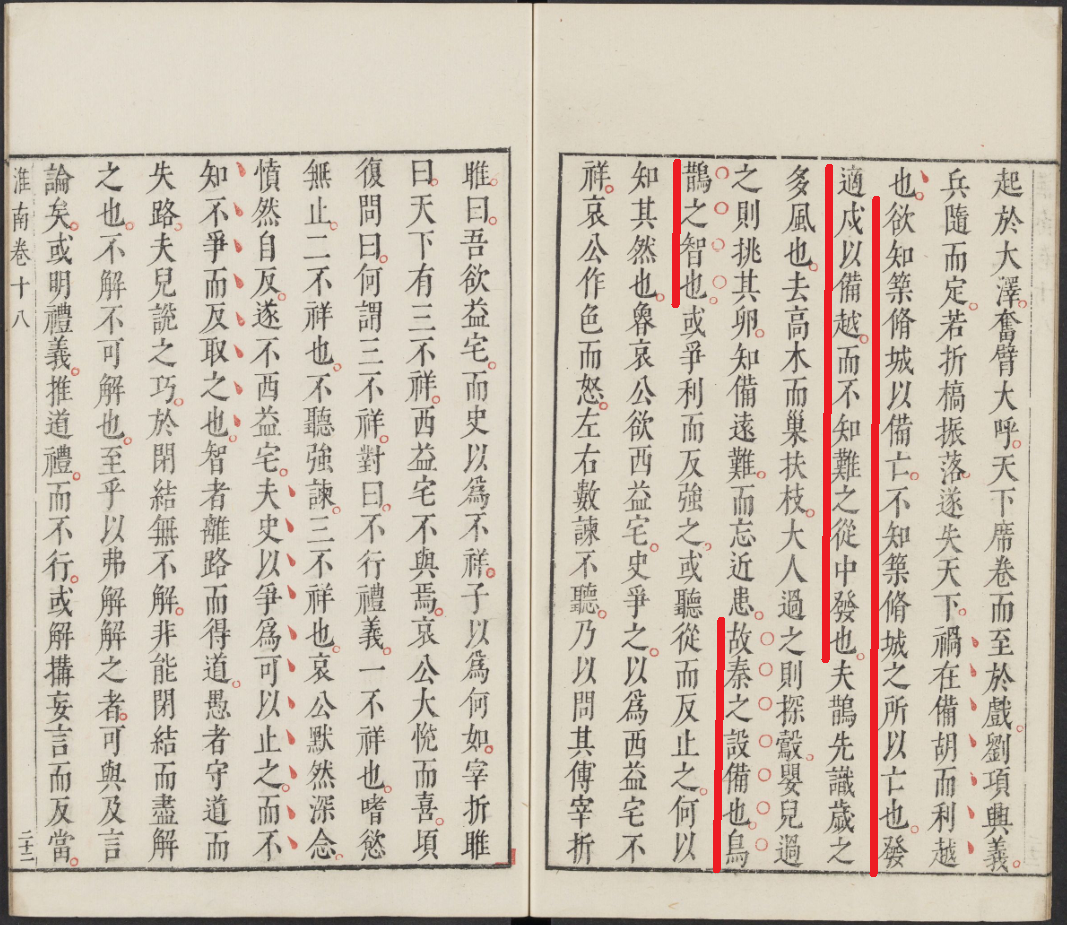 起於大澤奮臂大呼天下席卷而至於戲劉項興義
兵隨而定若折槁振落遂失天下禍在備胡而利越
也欲知築脩城以備亡不知築脩城之所以亡也發
適戍以備越而不知難之從中發也夫鵲先識歲之
多風也去高木而巢扶枝大人過之則探鷇嬰兒過
之則挑其卵知備遠難而忘近患故秦之設備也鳥
鵲之智也或爭利而反強之或聽從而反止之何以
知其然也魯哀公欲西益宅史爭之以為西益宅不
祥哀公作色而怒左右數諫不聽乃以問其傅宰折
睢曰吾欲益宅而史以為不祥子以為何如宰折睢
曰天下有三不祥西益宅不與焉哀公大悅而喜頃
復問曰何謂三不祥對曰不行禮義一不祥也嗜慾
無止二不祥也不聽強諫三不祥也哀公默然深念
憤然自反遂不西益宅夫史以爭為可以止之而不
知不爭而反取之也智者離路而得道愚者守道而
失路夫兒說之巧於閉結無不解非能閉結而盡解
之也不解不可解也至乎以弗解解之者可與及言
論矣或明禮義推道禮而不行或解搆妄言而反當
淮南卷十八
二十二